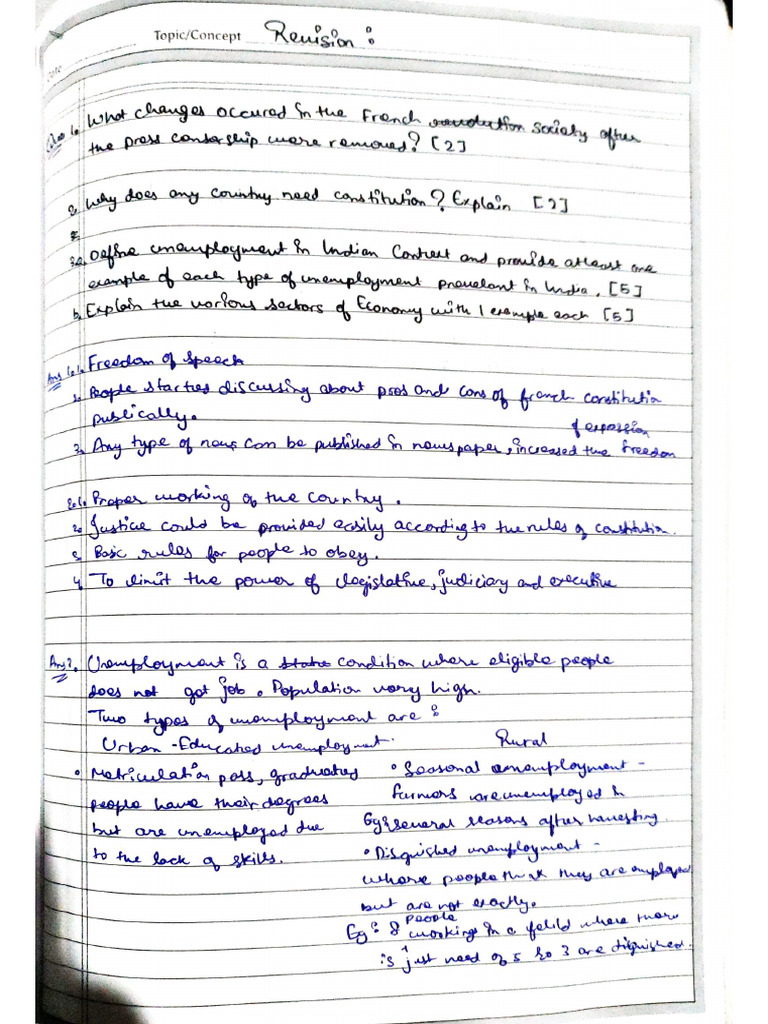 Topic/Concept Revision :
Ques 1. What changes occured in the French revolution society after
the press censorship were removed? [2]
2. Why does any country need constitution? Explain [2]
3.a. Define unemployment in Indian Context and provide atleast one
example of each type of unemployment prevelant in India. [5]
b. Explain the various sectors of Economy with 1 example each [5]
Ans 1. 1. Freedom of speech
2. People started discussing about pros and cons of french constitution
publically.
of expression
3. Any type of news can be published in newspaper, increased the freedom
2. 1. Proper working of the country.
2. Justice could be provided easily according to the rules of constitution.
3. Basic rules for people to obey.
4. To limit the power of legislative, judiciary and executive
Ans 3. Unemployment is a status condition where eligible people
does not got job. Population very high.
Two types of unemployment are :
Urban - Educated unemployment. Rural
• Matriculation pass, graduated • Seasonal unemployment -
people have their degrees farmers are unemployed in
but are unemployed due several seasons after harvesting
to the lack of skills. • Disguished unemployment -
where people think they are employed
but are not exactly.
Eg: 8 people working in a feild where there
is just need of 5 so 3 are disguished.